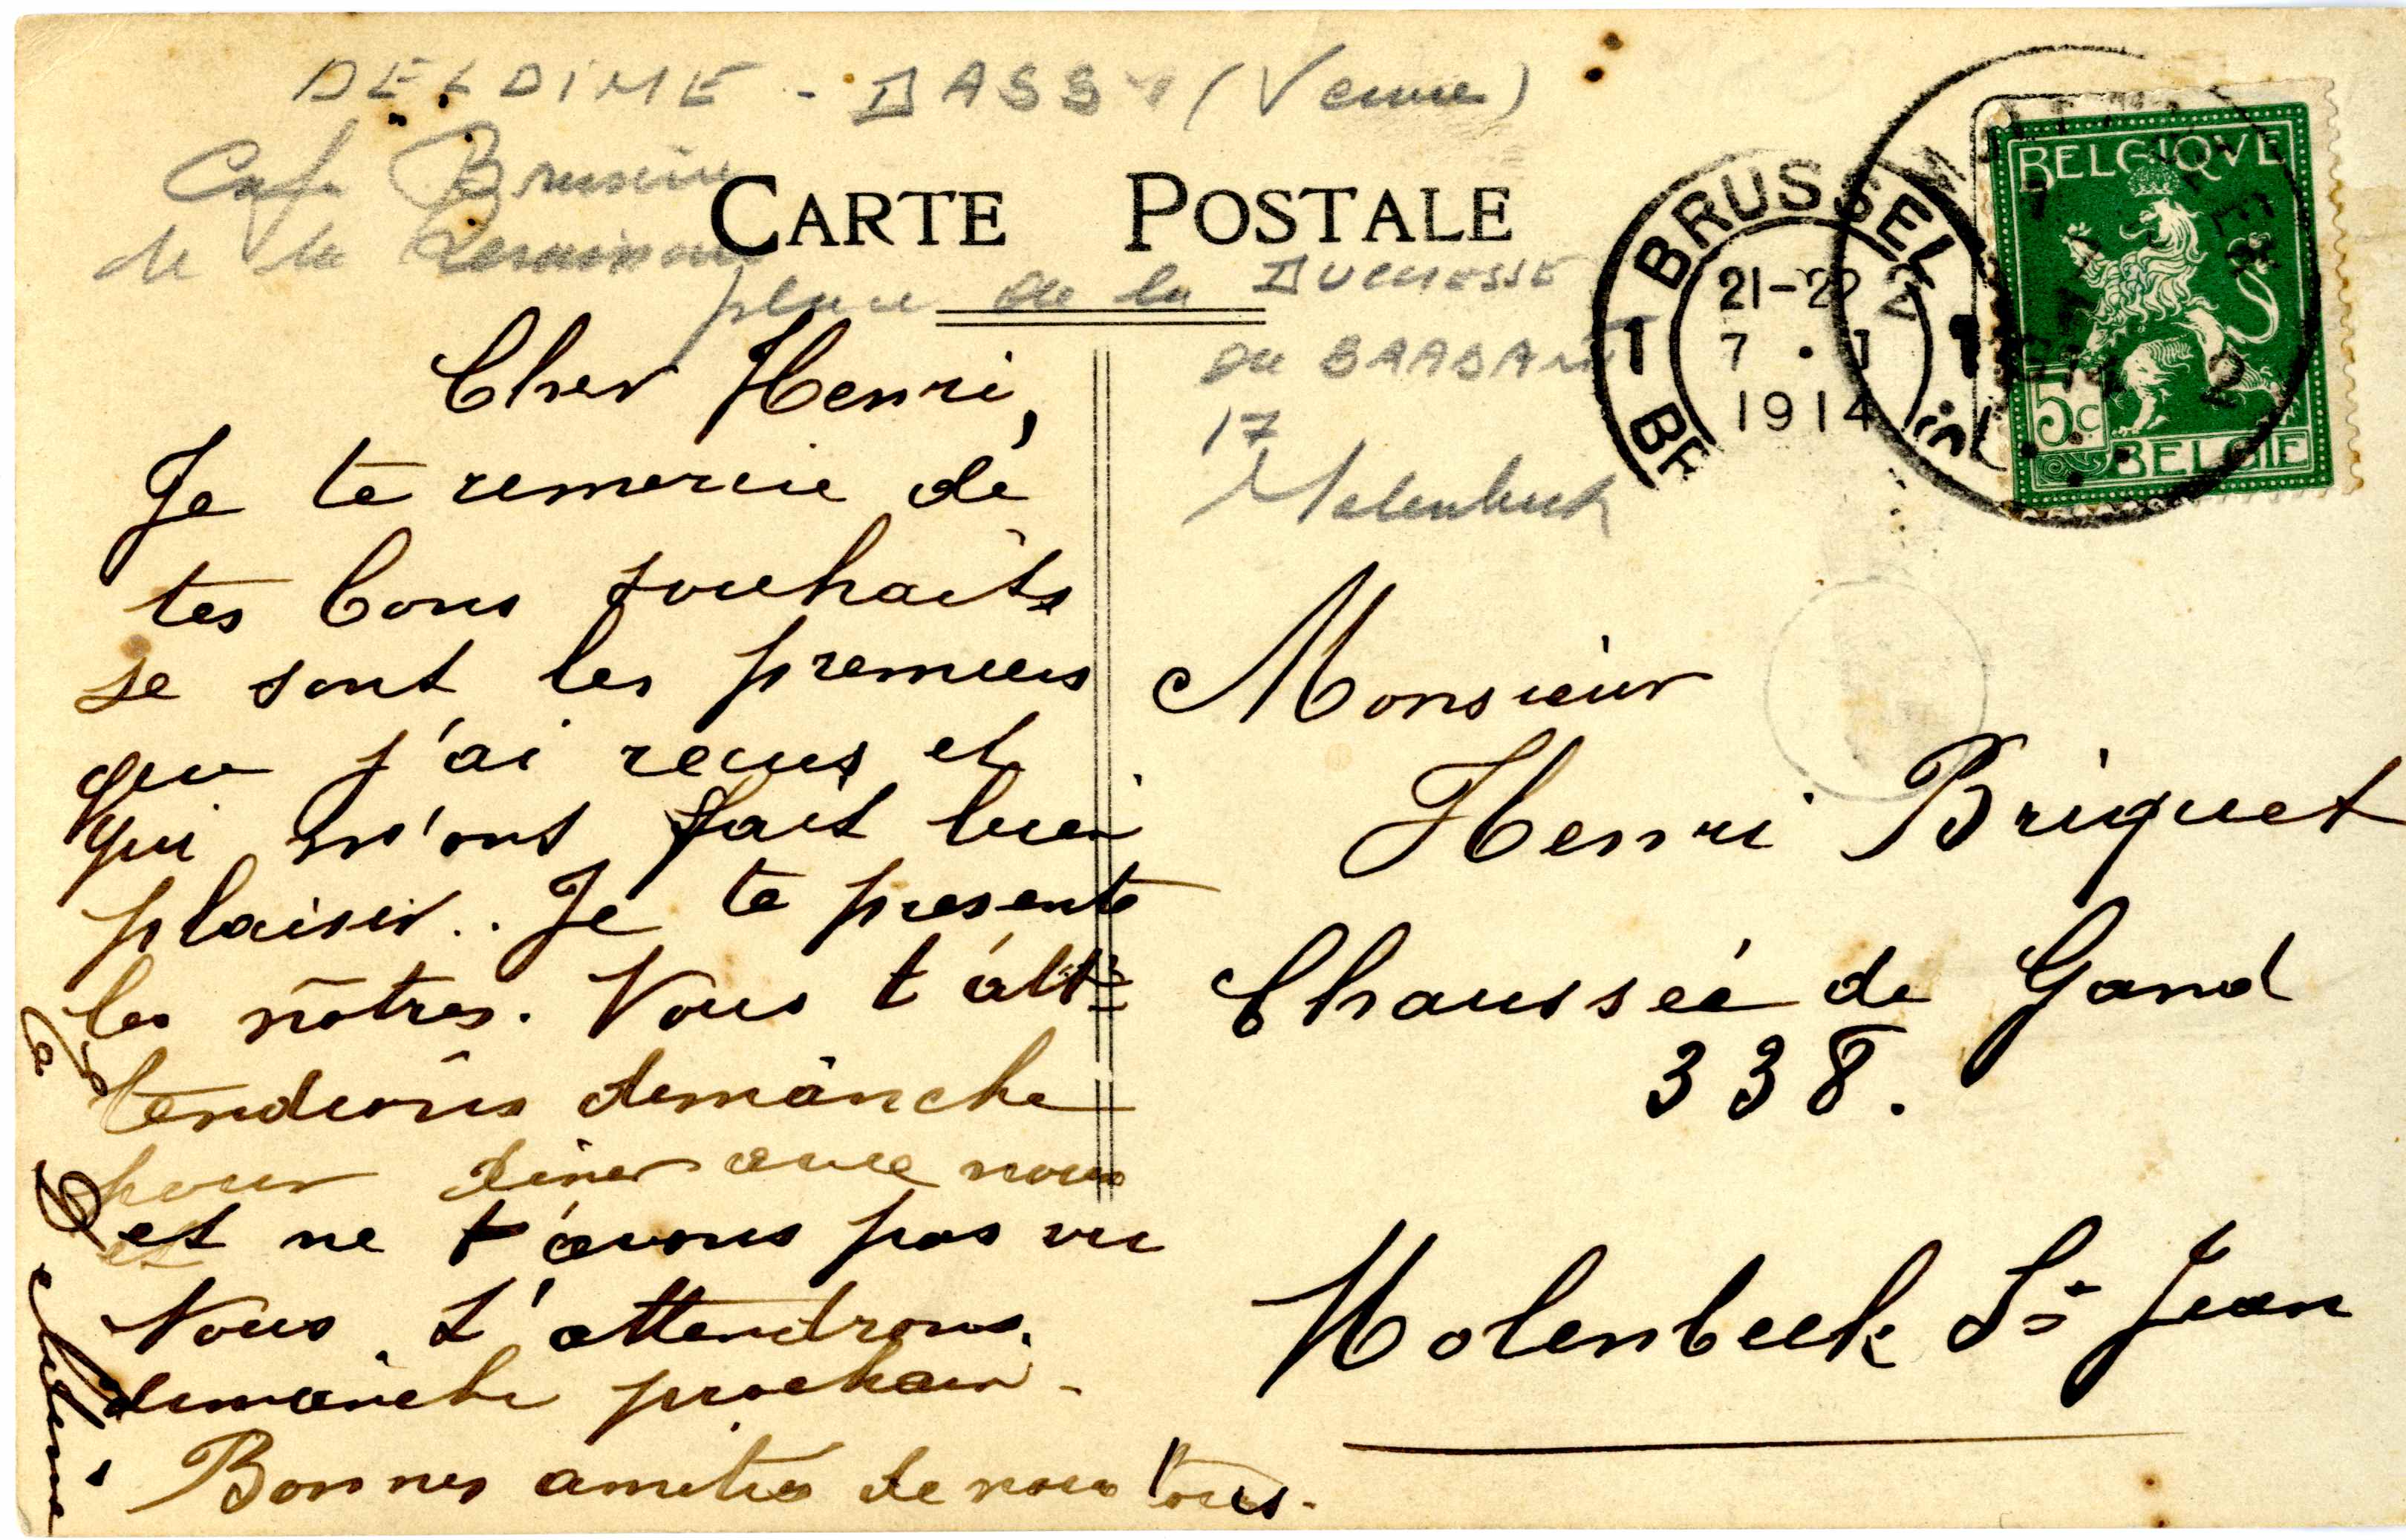 DELDIME - DASSY (Veuve)
Café
de la
place de la DUCHESSE
de BRABANT
17
Molenbeek
CARTE POSTALE
1 BRUSSEL 1
21-22
7 · I
1914
BELGIQVE
5c
BELGIE
Cher Henri,
Je te remercie de
tes bons souhaits
se sont les premiers
que j'ai recus et
qui m'ont fait bien
plaisir.. Je te presente
les nôtres. Nous t'att=
tendions dimanche
pour diner avec nous
et ne t'avons pas vu
Nous t'attendrons
dimanche prochain -
Bonnes amitiés de nous tous.
Monsieur
Henri Briquet
Chaussée de Gand
338.
Molenbeek St Jean